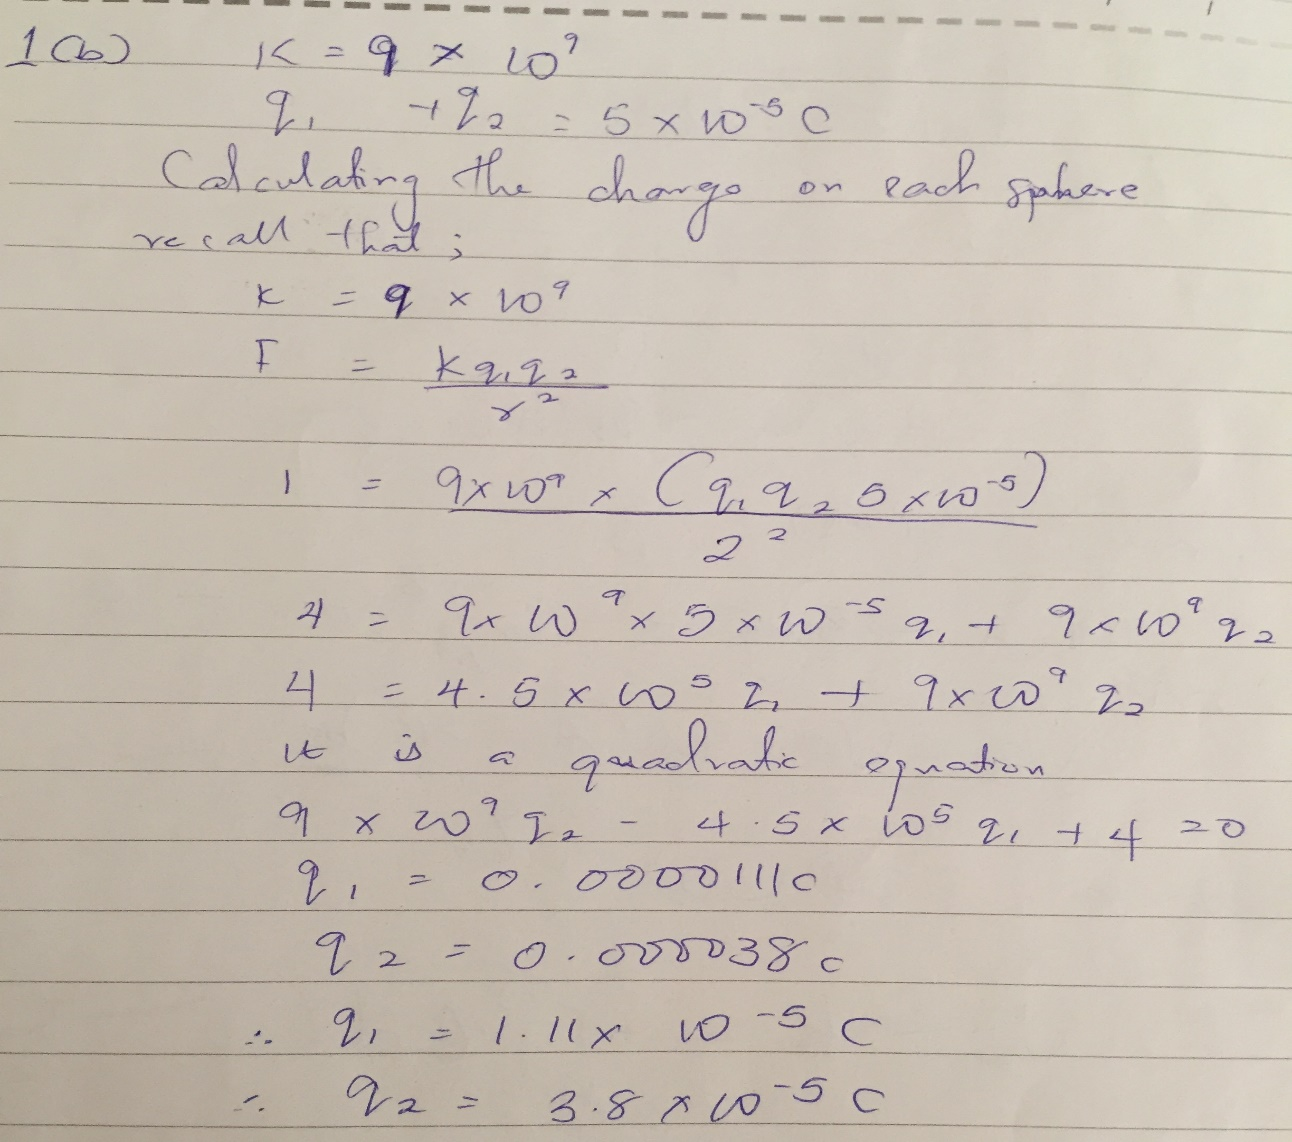 1(b) K = 9 × 10⁹
q₁ + q₂ = 5 × 10⁻⁵ C
Calculating the charge on each sphere
recall that ;
K = 9 × 10⁹
F = Kq₁q₂ / r²
1 = 9×10⁹ × (q₁q₂ 5×10⁻⁵) / 2²
4 = 9×10⁹ × 5×10⁻⁵ q₁ + 9×10⁹ q₂
4 = 4.5×10⁵ q₁ + 9×10⁹ q₂
it is a quadratic equation
9 × 10⁹ q₂ - 4.5 × 10⁵ q₁ + 4 = 0
q₁ = 0.0000111C
q₂ = 0.000038C
∴ q₁ = 1.11× 10⁻⁵ C
∴ q₂ = 3.8 × 10⁻⁵ C